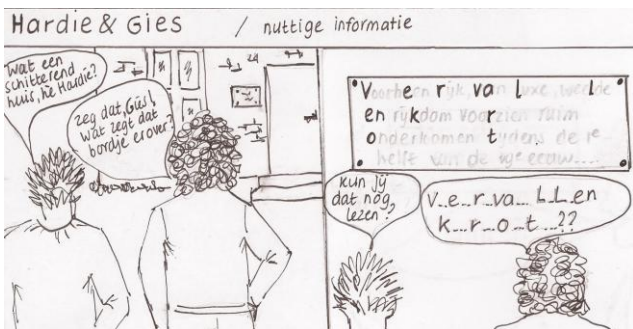 Hardie & Gies / nuttige informatie
Wat een
schitterend
huis, hè Hardie?
Zeg dat, Gies!
Wat zegt dat
bordje erover?
Voorheen rijk, van luxe, weelde
en rijkdom voorzien ruim
onderkomen tijdens de 1e
helft van de 19e eeuw....
Kun jij
dat nog
lezen?
V..e..r..va... LL..en
k...r...o...t...??